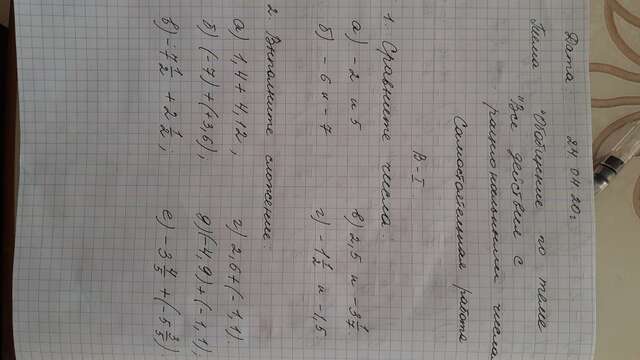 Дата: 24.04.20г
Тема "Обобщение по теме
"Все действия с
рациональными числа
Самостоятельная работа
В-I
1. Сравните числа:
а) -2 и 5 в) 2,5 и -3 1/7
б) -6 и -7 г) -1 1/2 и -1,5
2. Выполните сложение:
а) 1,4+4,12; г) 2,6+(-1,1).
б) (-7)+(+3,6), д) (-4,9)+(-1,1),
в) -7 1/2 + 2 1/2; е) -3 4/5 + (-5 2/3)